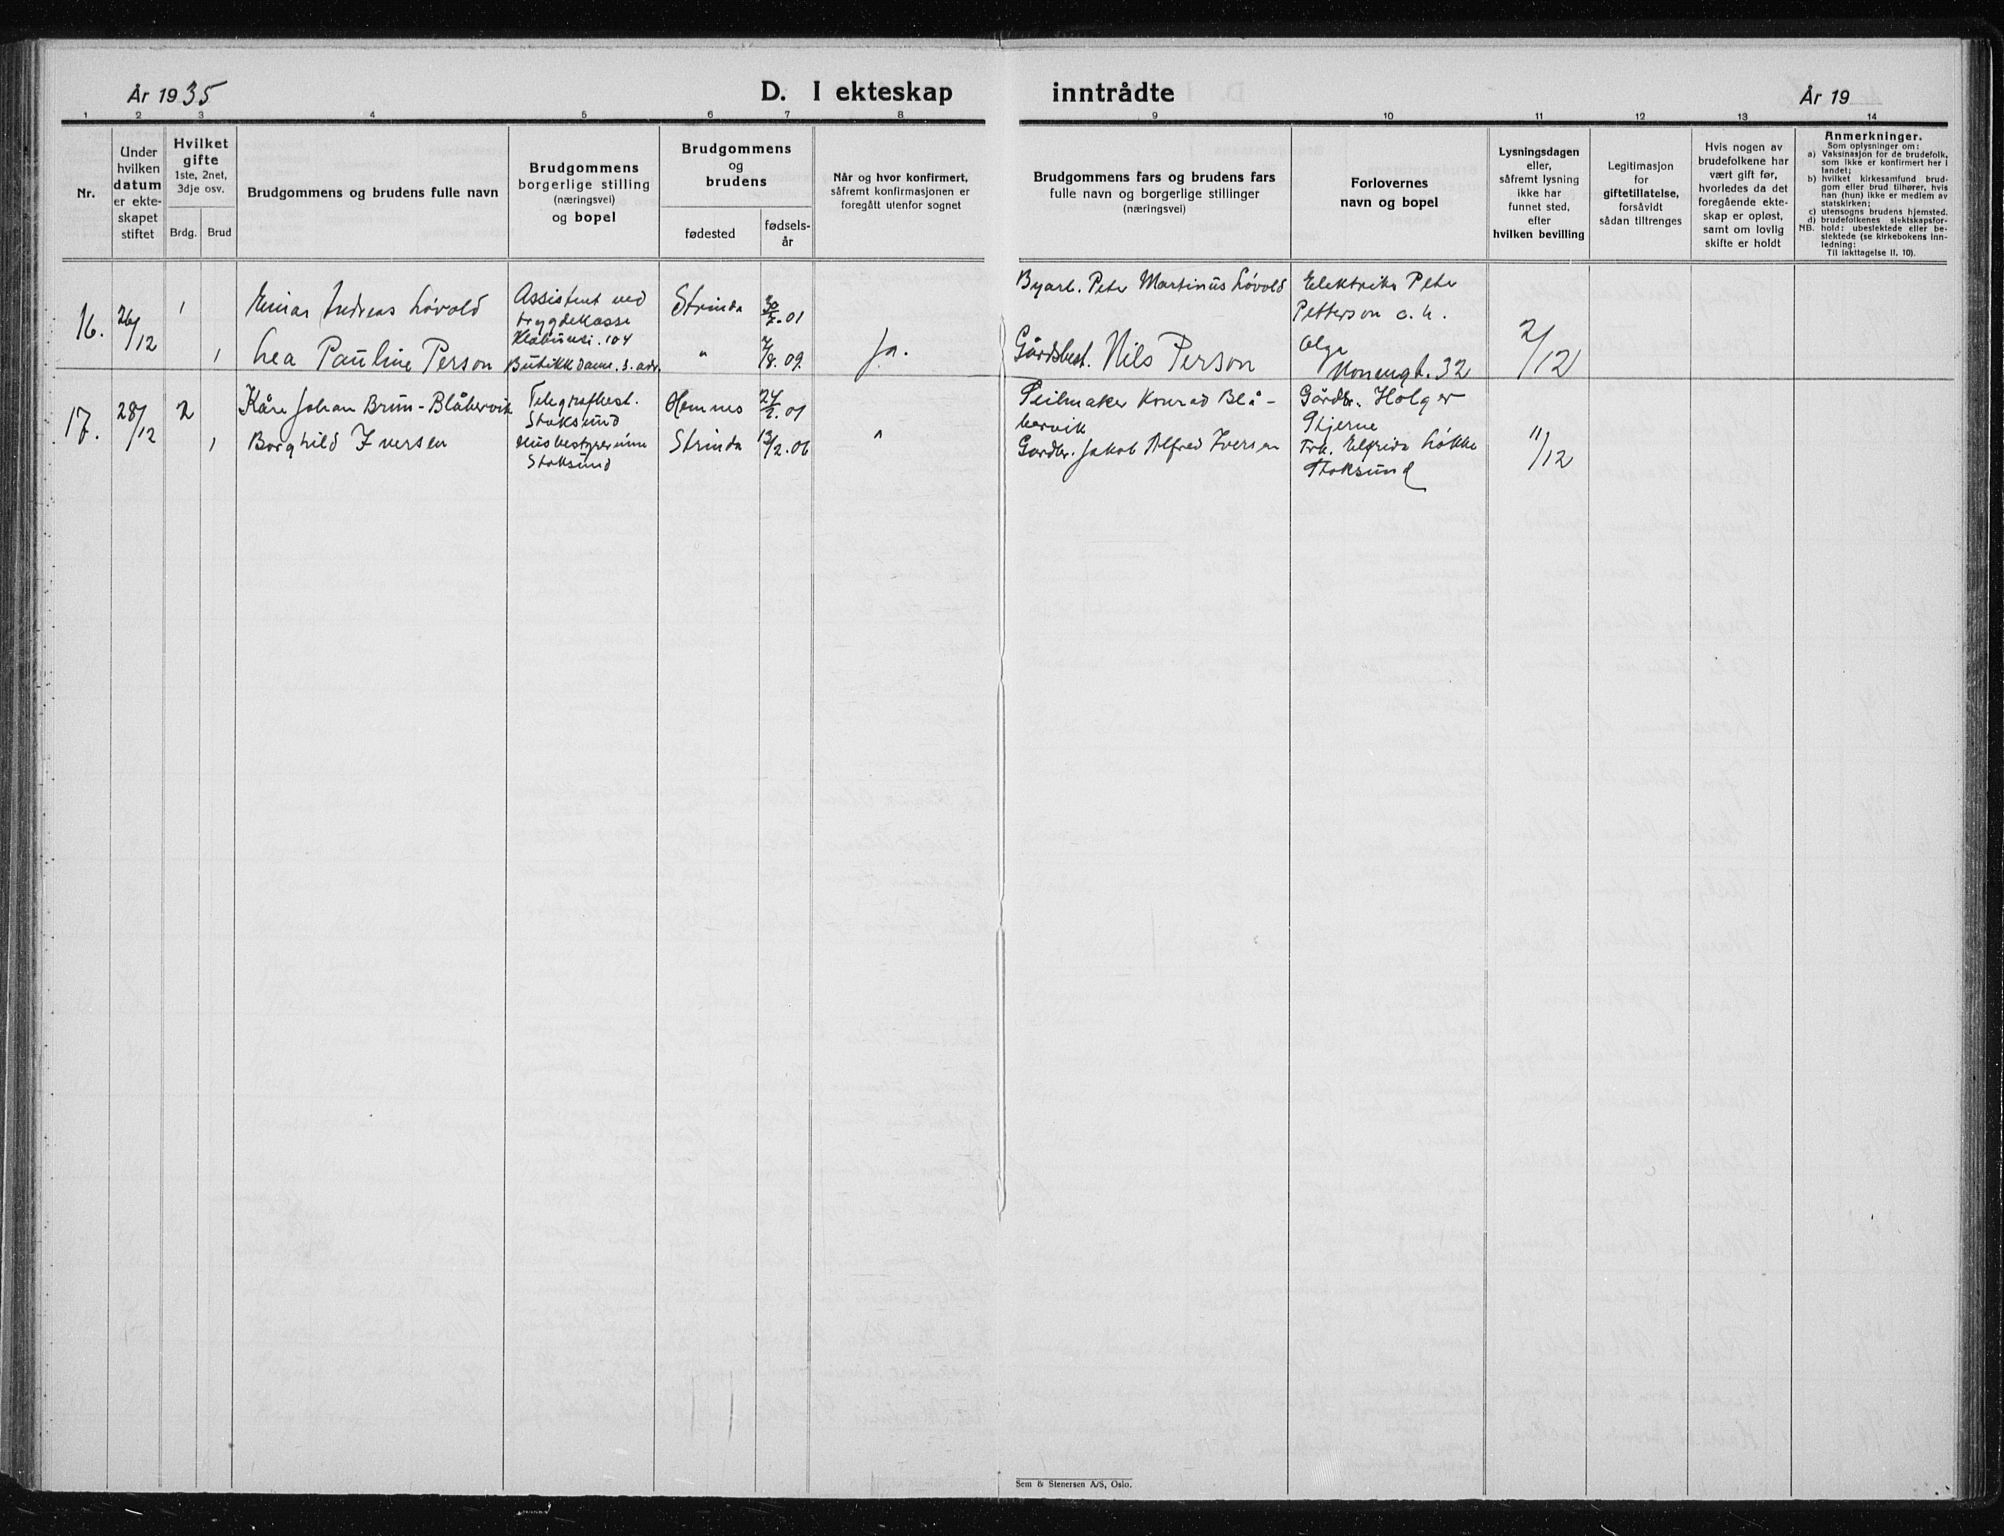 År 1935
D. I ekteskap inntrådte
År 19
1 2 3 4 5 6 7 8 9 10 11 12 13 14
Nr.
Under
hvilken
datum
er ekte-
skapet
stiftet
Hvilket
gifte
1ste, 2net,
3dje osv.
Brdg. Brud
Brudgommens og brudens fulle navn
Brudgommens
borgerlige stilling
(næringsvei)
og bopel
Brudgommens
og
brudens
fødested
fødsels-
år
Når og hvor konfirmert,
såfremt konfirmasjonen er
foregått utenfor sognet
Brudgommens fars og brudens fars
fulle navn og borgerlige stillinger
(næringsvei)
Forlovernes
navn og bopel
Lysningsdagen
eller,
såfremt lysning
ikke har
funnet sted,
efter
hvilken bevilling
Legitimasjon
for
giftetillatelse,
forsåvidt
sådan tiltrenges
Hvis nogen av
brudefolkene har
vært gift før,
hvorledes da det
foregående ekte-
skap er opløst,
samt om lovlig
skifte er holdt
Anmerkninger.
Som oplysninger om:
a) Vaksinasjon for de brudefolk,
som ikke er konfirmert her i
landet;
b) hvilket kirkesamfund brud-
gom eller brud tilhører, hvis
han (hun) ikke er medlem av
statskirken;
c) utensogns brudens hjemsted.
d) brudefolkenes slektskapsfor-
NB. hold: ubeslektede eller be-
slektede (se kirkebokens Inn-
ledning:
Til iakttagelse II, 10).
16. 26/12
1 Einar Andreas Løvold
Assistent ved
trygdekasse
104
Strinda 30/ .01
Byarb. Peter Martinus Løvold
Elektriker Peter
Petterson o. h.
Olga
32
2/12
1 Lea Pauline Person
Butikkdame. s. adr.
" /8. 09.
Ja.
Gårdsbest. Nils Person
17. 28/12
2 Kåre Johan Brun-Blåbervik
Telegrafbest.
Stoksund
Hemnes 24/ .01
Seilmaker Konrad Blå-
bervik
Gårdbr. Holger
Gjerne
11/12
1 Borghild Iversen
Husbestyrerinne
Stoksund
Strinda 13/2. 06
"
Gårdbr. Jakob Alfred Iversen
Frk. Elfrida Løkke
Stoksund
Sem & Stenersen A/S, Oslo.